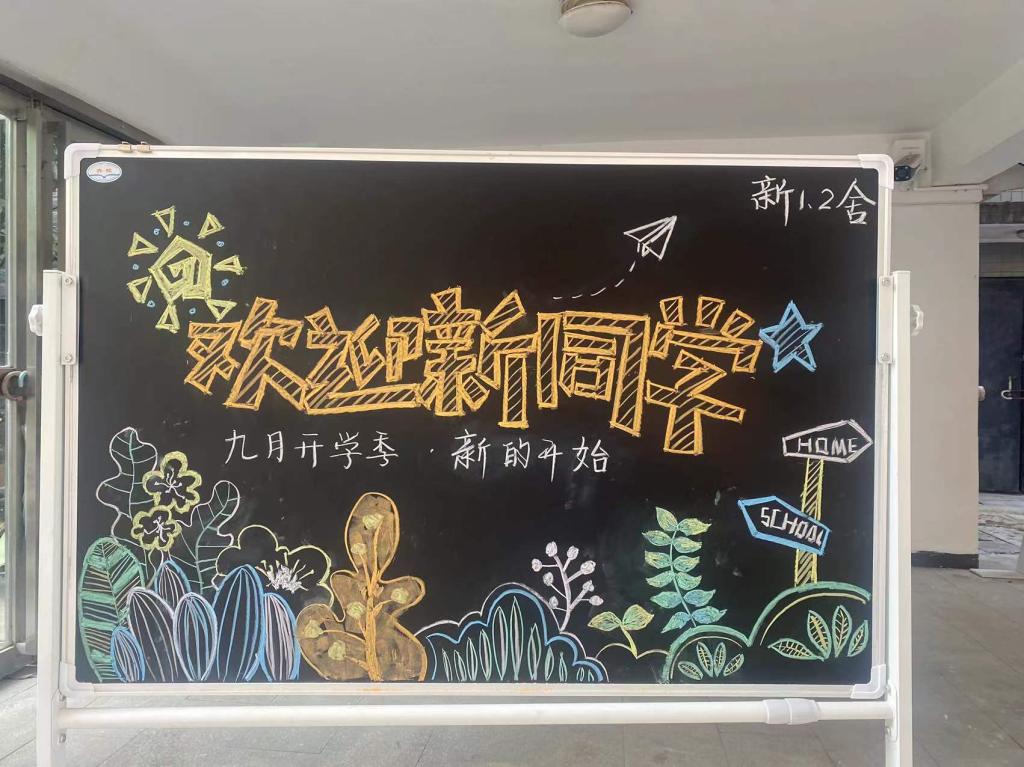 新1.2舍
欢迎新同学
九月开学季·新的开始
HOME
SCHOOL